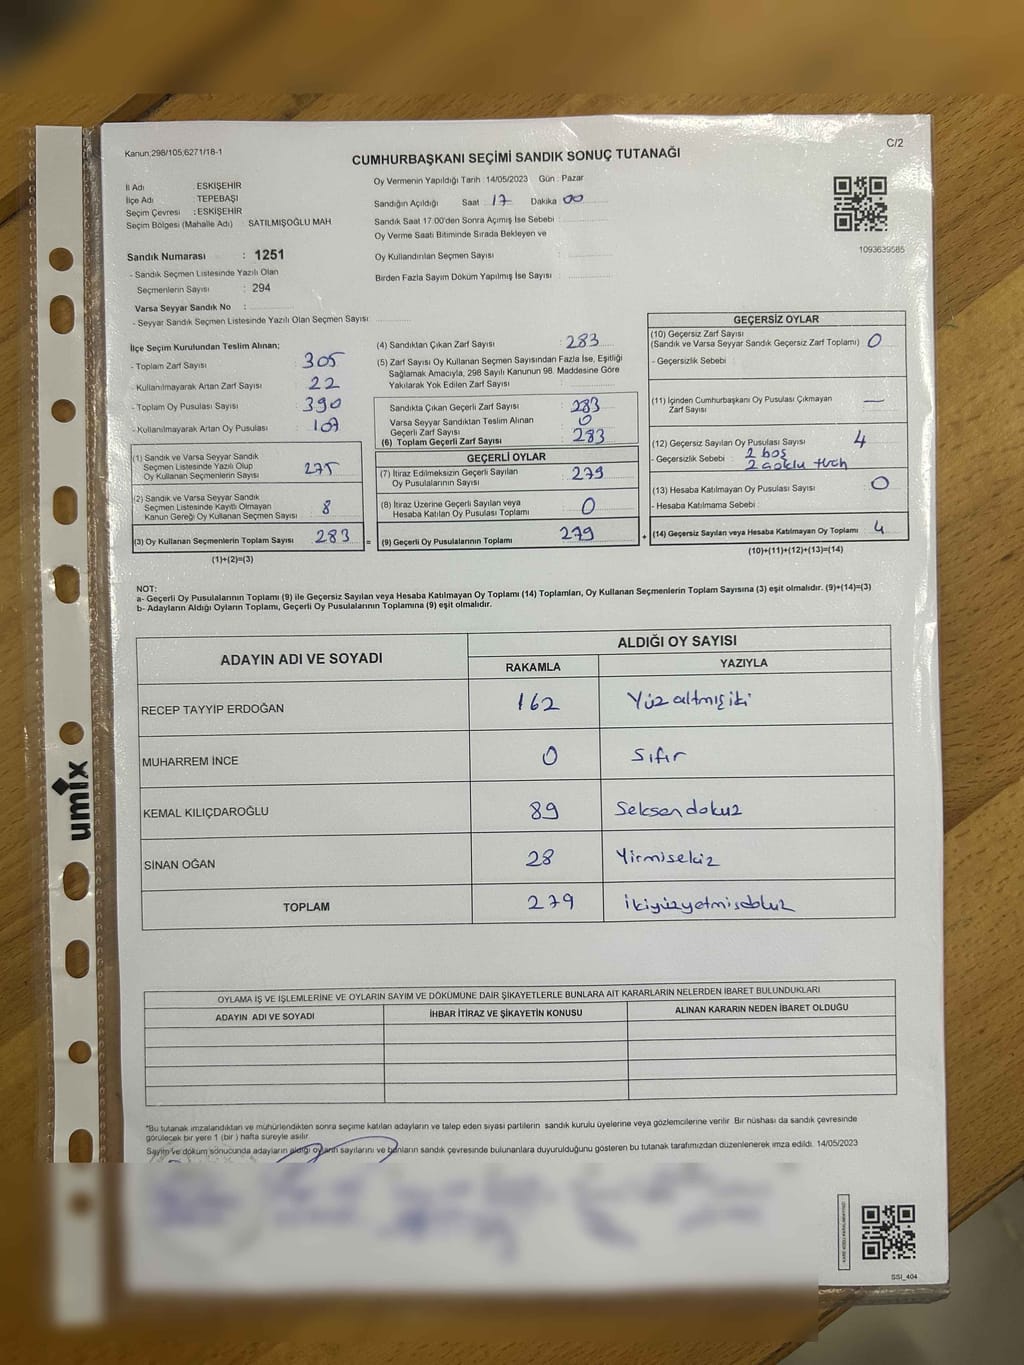 Kanun:298/105,6271/18-1
C/2
CUMHURBAŞKANI SEÇİMİ SANDIK SONUÇ TUTANAĞI
İl Adı : ESKİŞEHİR
İlçe Adı : TEPEBAŞI
Seçim Çevresi : ESKİŞEHİR
Seçim Bölgesi (Mahalle Adı) SATILMIŞOĞLU MAH.
Sandık Numarası : 1251
- Sandık Seçmen Listesinde Yazılı Olan
Seçmenlerin Sayısı : 294
Varsa Seyyar Sandık No :
- Seyyar Sandık Seçmen Listesinde Yazılı Olan Seçmen Sayısı:
Oy Vermenin Yapıldığı Tarih :14/05/2023 Gün : Pazar
Sandığın Açıldığı Saat 17 Dakika 00
Sandık Saat 17.00'den Sonra Açımış İse Sebebi :
Oy Verme Saati Bitiminde Sırada Bekleyen ve
Oy Kullandırılan Seçmen Sayısı :
Birden Fazla Sayım Döküm Yapılmış İse Sayısı :
1093639585
İlçe Seçim Kurulundan Teslim Alınan;
- Toplam Zarf Sayısı : 305
- Kullanılmayarak Artan Zarf Sayısı : 22
- Toplam Oy Pusulası Sayısı : 390
- Kullanılmayarak Artan Oy Pusulası : 107
(1) Sandık ve Varsa Seyyar Sandık
Seçmen Listesinde Yazılı Olup
Oy Kullanan Seçmenlerin Sayısı : 275
(2) Sandık ve Varsa Seyyar Sandık
Seçmen Listesinde Kayıtlı Olmayan
Kanun Gereği Oy Kullanan Seçmen Sayısı : 8
(3) Oy Kullanan Seçmenlerin Toplam Sayısı : 283 =
(1)+(2)=(3)
(4) Sandıktan Çıkan Zarf Sayısı : 283
(5) Zarf Sayısı Oy Kullanan Seçmen Sayısından Fazla İse, Eşitliği
Sağlamak Amacıyla, 298 Sayılı Kanunun 98. Maddesine Göre
Yakılarak Yok Edilen Zarf Sayısı :
Sandıkta Çıkan Geçerli Zarf Sayısı : 283
Varsa Seyyar Sandıktan Teslim Alınan
Geçerli Zarf Sayısı : 0
(6) Toplam Geçerli Zarf Sayısı : 283
GEÇERLİ OYLAR
(7) İtiraz Edilmeksizin Geçerli Sayılan
Oy Pusulalarının Sayısı : 279
(8) İtiraz Üzerine Geçerli Sayılan veya
Hesaba Katılan Oy Pusulası Toplamı : 0
(9) Geçerli Oy Pusulalarının Toplamı : 279 +
GEÇERSİZ OYLAR
(10) Geçersiz Zarf Sayısı
(Sandık ve Varsa Seyyar Sandık Geçersiz Zarf Toplamı) : 0
- Geçersizlik Sebebi :
(11) İçinden Cumhurbaşkanı Oy Pusulası Çıkmayan
Zarf Sayısı : —
(12) Geçersiz Sayılan Oy Pusulası Sayısı : 4
- Geçersizlik Sebebi : 2 boş
2 çoklu
(13) Hesaba Katılmayan Oy Pusulası Sayısı : 0
- Hesaba Katılmama Sebebi :
(14) Geçersiz Sayılan veya Hesaba Katılmayan Oy Toplamı : 4
(10)+(11)+(12)+(13)=(14)
NOT:
a- Geçerli Oy Pusulalarının Toplamı (9) ile Geçersiz Sayılan veya Hesaba Katılmayan Oy Toplamı (14) Toplamları, Oy Kullanan Seçmenlerin Toplam Sayısına (3) eşit olmalıdır. (9)+(14)=(3)
b- Adayların Aldığı Oyların Toplamı, Geçerli Oy Pusulalarının Toplamına (9) eşit olmalıdır.
ADAYIN ADI VE SOYADI ALDIĞI OY SAYISI
RAKAMLA YAZIYLA
RECEP TAYYİP ERDOĞAN 162 Yüzaltmışiki
MUHARREM İNCE 0 Sıfır
KEMAL KILIÇDAROĞLU 89 Seksendokuz
SİNAN OĞAN 28 Yirmisekiz
TOPLAM 279 ikiyüzyetmişdokuz
OYLAMA İŞ VE İŞLEMLERİNE VE OYLARIN SAYIM VE DÖKÜMÜNE DAİR ŞİKAYETLERLE BUNLARA AİT KARARLARIN NELERDEN İBARET BULUNDUKLARI
ADAYIN ADI VE SOYADI İHBAR İTİRAZ VE ŞİKAYETİN KONUSU ALINAN KARARIN NEDEN İBARET OLDUĞU
*Bu tutanak imzalandıktan ve mühürlendikten sonra seçime katılan adayların ve talep eden siyasi partilerin sandık kurulu üyelerine veya gözlemcilerine verilir. Bir nüshası da sandık çevresinde
görülecek bir yere 1 (bir) hafta süreyle asılır.
Sayım ve döküm sonucunda adayların aldığı oyların sayılarını ve bunların sandık çevresinde bulunanlara duyurulduğunu gösteren bu tutanak tarafımızdan düzenlenerek imza edildi. 14/05/2023
SSI_404
umix